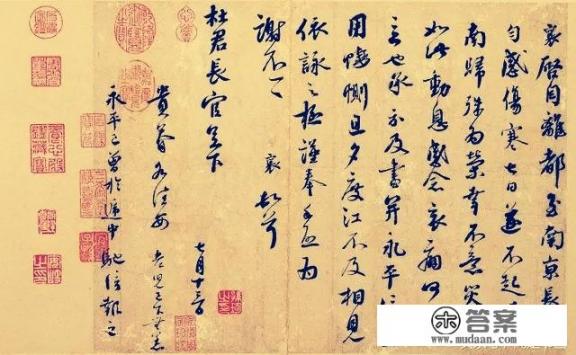 襄啓自離都至南京長
勻感傷寒七日遂不起
南歸殊爲榮幸不意災
如此動息感念哀痛何
言也承示及書并永平信
用悽惻旦夕度江不及相見
依詠之極謹奉手啓爲
謝不一一 襄頓首
杜君長官足下
七月十三日
貴眷各佳安 老兒已下無恙
永平已曾於遞中馳信報之
答案
www.mudaan.com